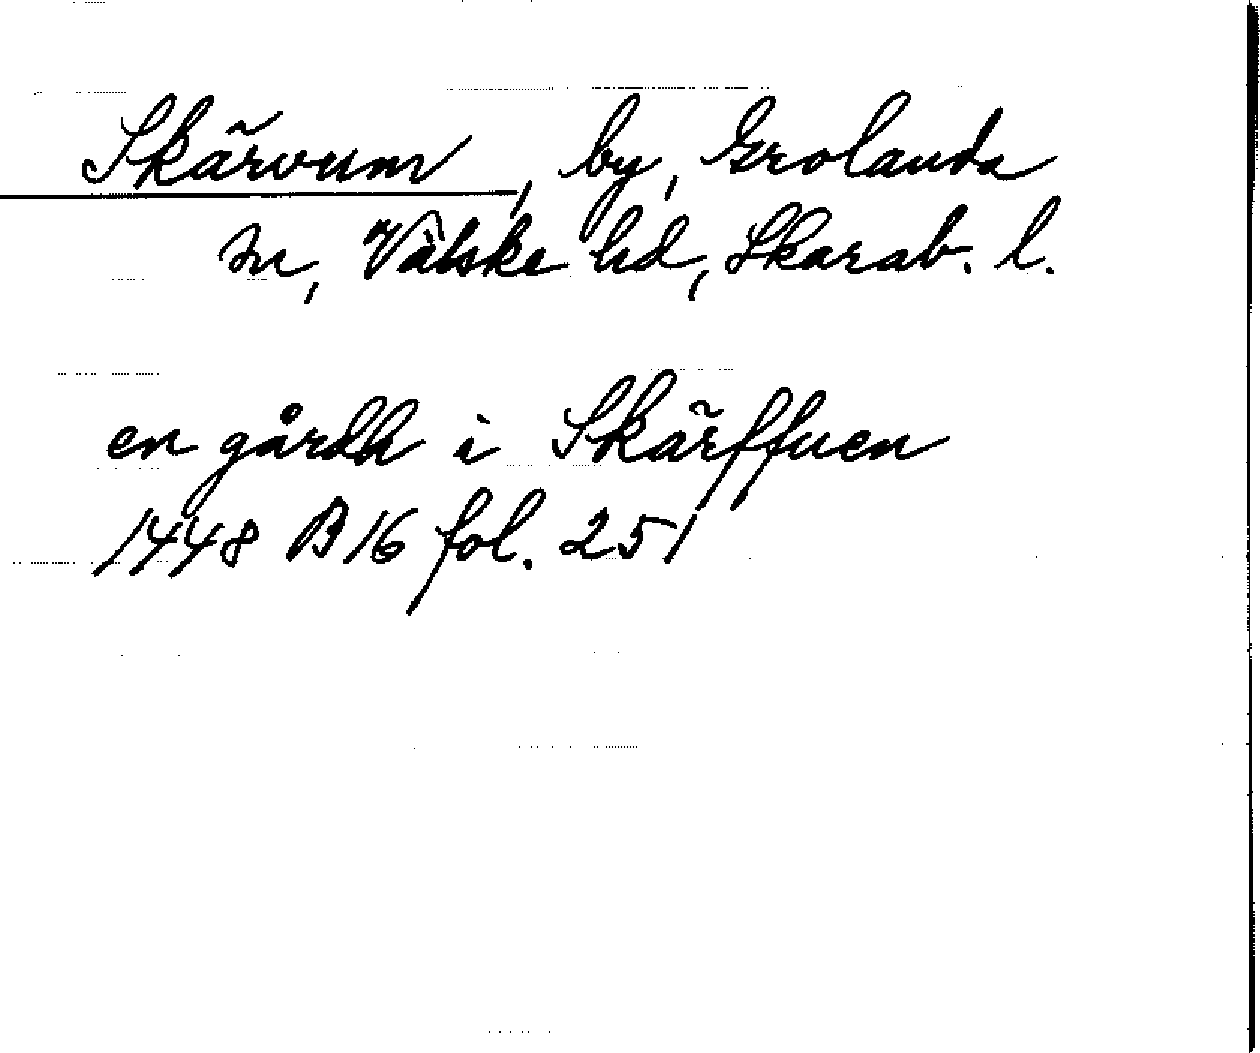 Skärvum, by, Grolanda
sn, Vilske hd, Skarab. l.
en gårdh i Skärffuen
1448 B16 fol. 251